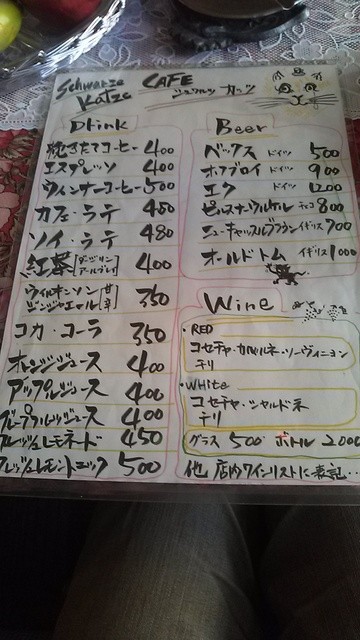 Schwarze Katze CAFE
シュヴァルツ カッツェ
Drink
挽きたてコーヒー 400
エスプレッソ 400
ウィンナーコーヒー 500
カフェ・ラテ 450
ソイ・ラテ 480
紅茶 [ダージリン アールグレイ] 400
ウィルキンソン ジンジャエール [甘 辛] 350
コカ・コーラ 350
オレンジジュース 400
アップルジュース 400
グレープフルーツジュース 400
フレッシュレモネード 450
フレッシュレモントニック 500
Beer
ベックス ドイツ 500
ホフブロイ ドイツ 900
エク ドイツ 1200
ピルスナーウルケル チェコ 800
ニューキャッスルブラウン イギリス 700
オールドトム イギリス 1000
Wine
・RED
コセチャ・カベルネ・ソーヴィニヨン
チリ
・White
コセチャ・シャルドネ
チリ
グラス 500 ボトル 2000
他 店内ワインリストに表記...